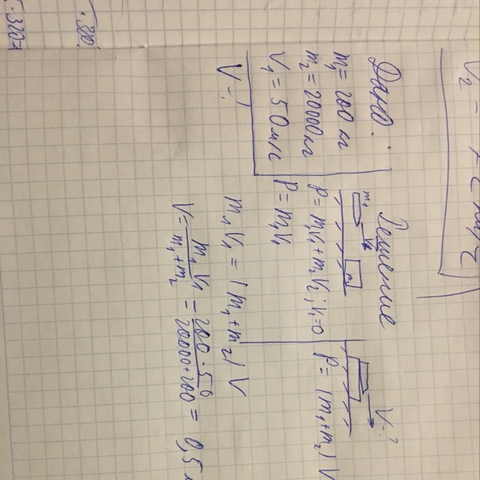 Дано:
m₁ = 200 кг
m₂ = 20000 кг
V₁ = 50 м/с
V - ?
Решение
m₁ V₁ m₂
P = m₁V₁ + m₂V₂; V₂ = 0
P = m₁V₁
V - ?
P = (m₁ + m₂) V
m₁V₁ = (m₁ + m₂) V
V = m₁V₁ / m₁ + m₂ = 200 · 50 / 20000 + 200 = 0,5
V₂ =